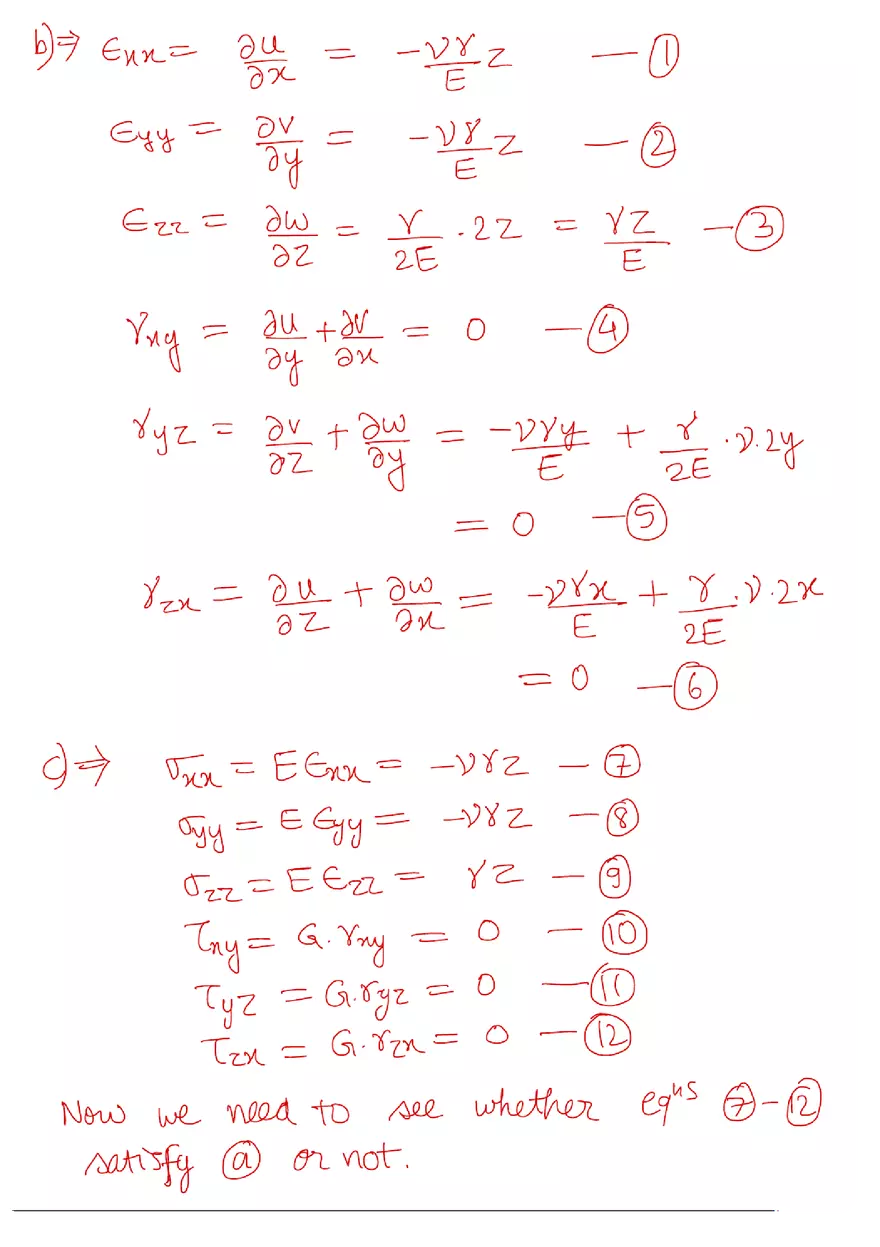 b)⇒ ϵxx = ∂u/∂x = -νγ/E z — ①
ϵyy = ∂v/∂y = -νγ/E z — ②
ϵzz = ∂w/∂z = γ/2E · 2z = γz/E — ③
γxy = ∂u/∂y + ∂v/∂x = 0 — ④
γyz = ∂v/∂z + ∂w/∂y = -νγy/E + γ/2E · ν · 2y
= 0 — ⑤
γzx = ∂u/∂z + ∂w/∂x = -νγx/E + γ/2E · ν · 2x
= 0 — ⑥
c)⇒ σxx = E ϵxx = -νγz — ⑦
σyy = E ϵyy = -νγz — ⑧
σzz = E ϵzz = γz — ⑨
τxy = G·γxy = 0 — ⑩
τyz = G·γyz = 0 — ⑪
τzx = G·γzx = 0 — ⑫
Now we need to see whether eqⁿs ⑦-⑫
satisfy ⓐ or not.